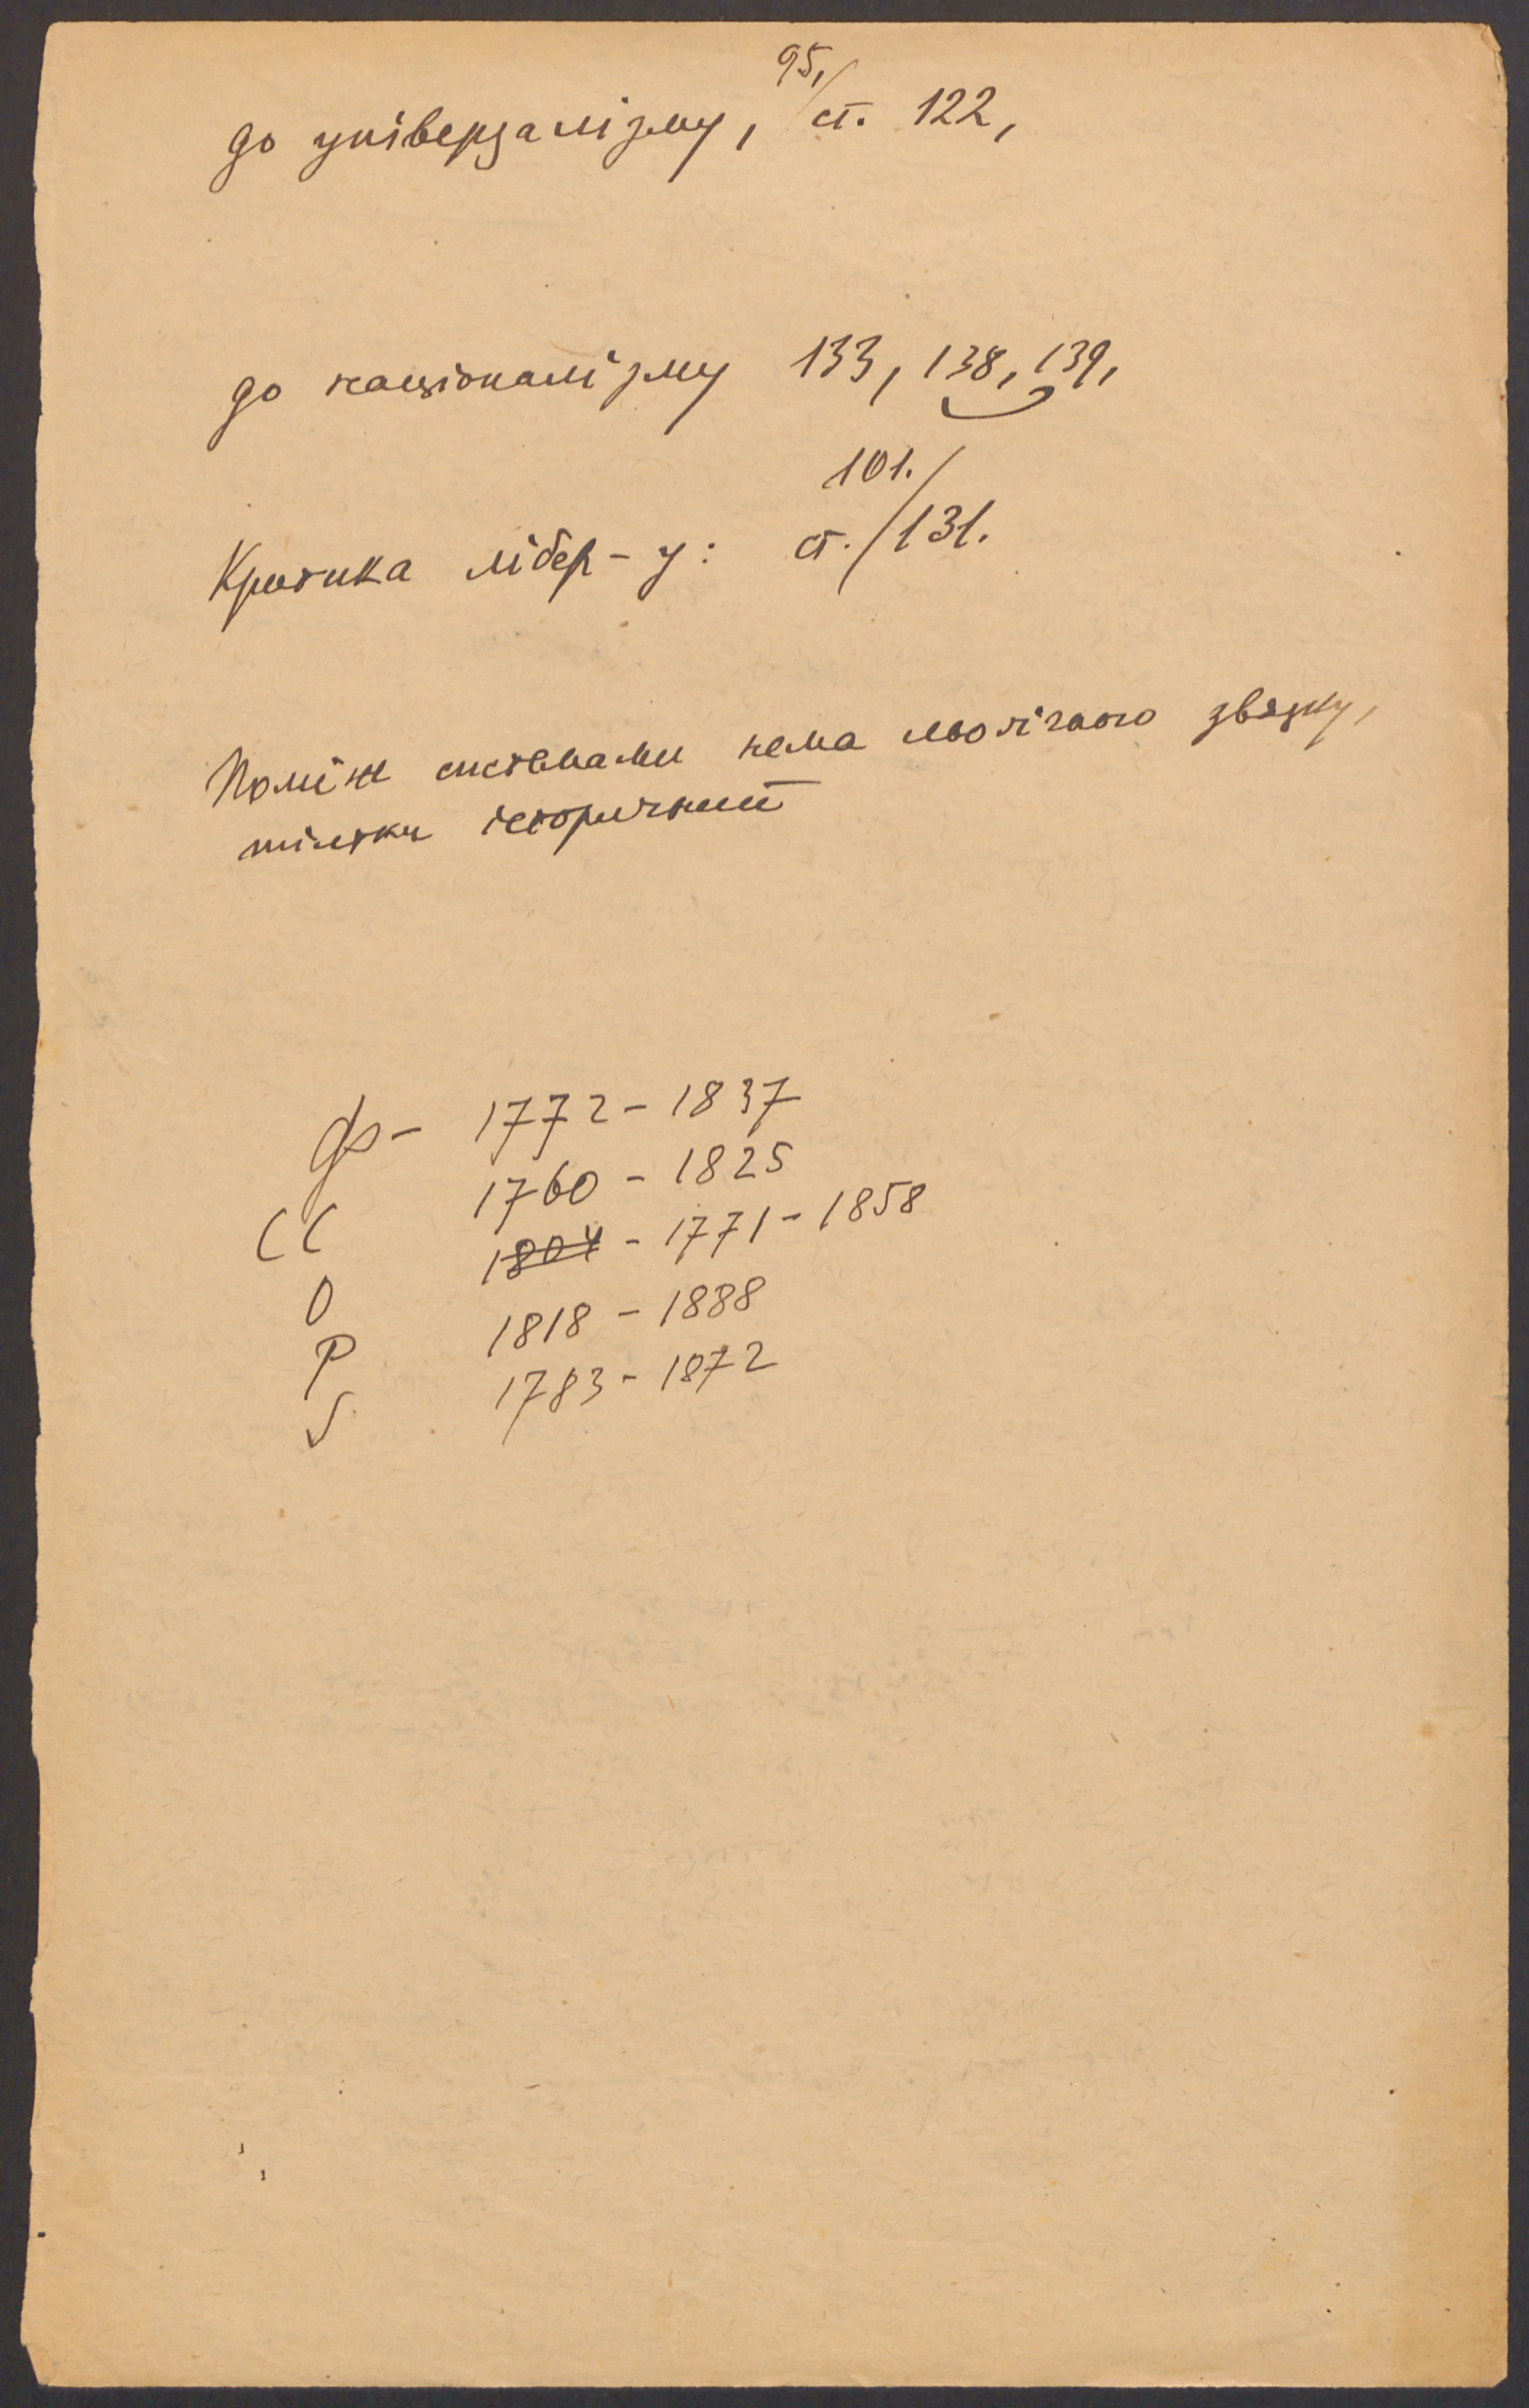 до універзалізму, 95, ст. 122,
до націоналізму 133, 138, 139,
101.
Критика лібер-у: ст. / 131.
Поміж системами нема льогічного звязку,
тільки історичний
Ф - 1772 - 1837
СС 1760 - 1825
О 1804 - 1771 - 1858
Р 1818 - 1888
S 1783 - 1872